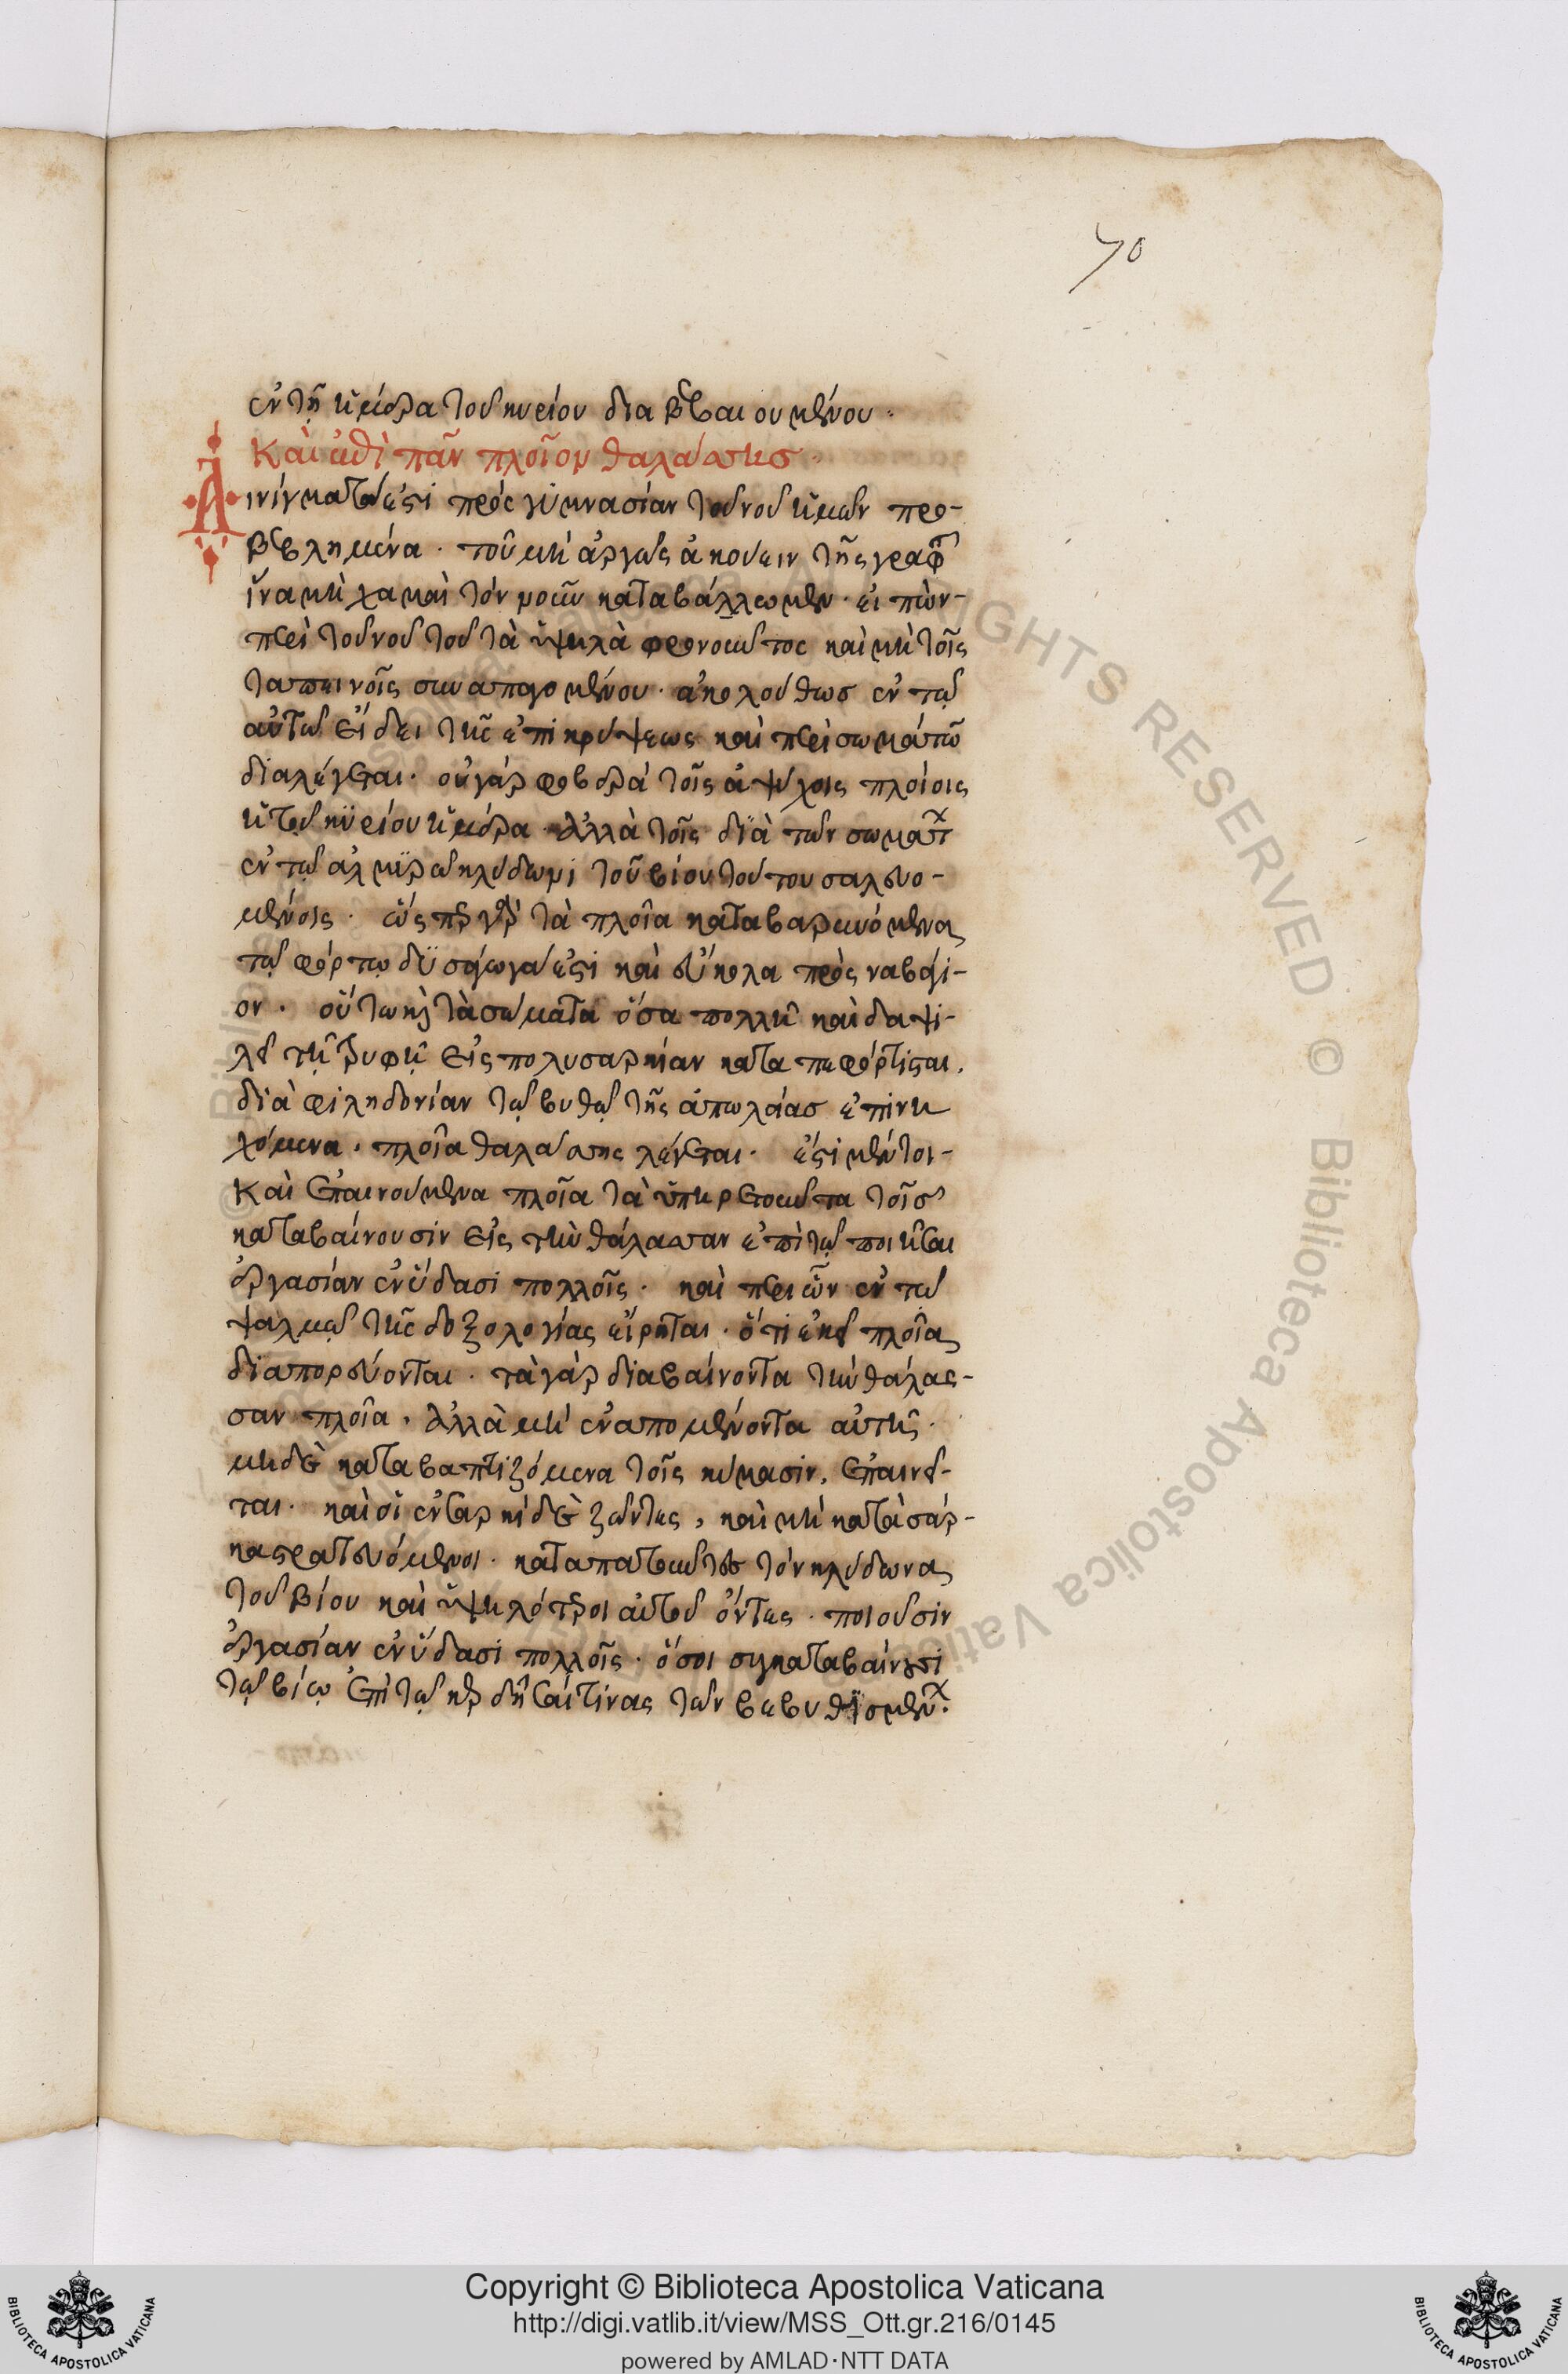 70
ἐν τῆ ἡμέρα τοῦ κυρίου διαβεβαιουμένου.
Καὶ ἐπὶ πᾶν πλοῖον θαλάσσησ.
Αἰνίγματά ἐστι πρὸς γυμνασίαν τοῦ νοῦ ἡμῶν προ-
βεβλημένα. τοῦ μὴ ἀργῶς ἀκούειν τῆς γραφῆς
ἵνα μὴ χαμαὶ τὸν νοῦν καταβάλλωμεν. εἰπὼν
περὶ τοῦ νοῦ τοῦ τὰ ὑψηλὰ φρονοῦντος καὶ μὴ τοῖς
ταπεινοῖς συναπαγομένου. ἀκολούθωσ ἐν τῷ
αὐτῶ εἴδει τῆς ἐπικρύψεως καὶ περὶ σωμάτων
διαλέγεται. οὐ γὰρ φοβερὰ τοῖς ἀψύχοις πλοίοις
ἡ τοῦ κυρίου ἡμέρα. ἀλλὰ τοῖς διὰ τῶν σωμάτων
ἐν τῷ ἁλμυρῶ κλύδωνι τοῦ βίου τούτου σαλευο-
μένοις. ὥσπερ γὰρ τὰ πλοῖα καταβαρυνόμενα
τῷ φόρτῳ δυσάγωγά ἐστι καὶ εὔκολα πρὸς ναυάγι-
ον. οὕτω καὶ τὰ σώματα ὅσα πολλῆ καὶ δαψι-
λεῖ τῆ τρυφῆ εἰς πολυσαρκίαν καταπεφόρτισται,
διὰ φιληδονίαν τῷ βυθῷ τῆς ἀπωλείασ ἐπινη
χόμενα. πλοῖα θαλάσσης λέγεται. ἔστι μέντοι-
καὶ ἐπαινούμενα πλοῖα τὰ ὑπηρετοῦντα τοῖσ
καταβαίνουσιν εἰς τὴν θάλασσαν ἐπὶ τῷ ποιεῖσθαι
ἐργασίαν ἐν ὕδασι πολλοῖς. καὶ περὶ ὧν ἐν τῷ
ψαλμῷ τῆς δοξολογίας εἴρηται. ὅτι ἐκεῖ πλοῖα
διαπορεύονται. τὰ γὰρ διαβαίνοντα τὴν θάλασ-
σαν πλοῖα, ἀλλὰ μὴ ἐναπομένοντα αὐτῆ.
μηδὲ καταβαπτιζόμενα τοῖς κύμασιν, ἐπαινεῖ-
ται. καὶ οἱ ἐν σαρκὶ δὲ ζῶντες, καὶ μὴ κατὰ σάρ-
κα στρατευόμενοι. καταπατοῦντες τὸν κλύδωνα
τοῦ βίου καὶ ὑψηλότεροι αὐτοῦ ὄντες. ποιοῦσιν
ἐργασίαν ἐν ὕδασι πολλοῖς. ὅσοι συγκαταβαίνουσι
τῷ βίῳ ἐπὶ τῷ κερδῆσαί τινας τῶν βεβυθισμένων.
GHTS RESERVED © Biblioteca Apostolica Vatica
Copyright © Biblioteca Apostolica Vaticana
http://digi.vatlib.it/view/MSS_Ott.gr.216/0145
powered by AMLAD·NTT DATA
BIBLIOTECA APOSTOLICA VATICANA
BIBLIOTECA APOSTOLICA VATICANA